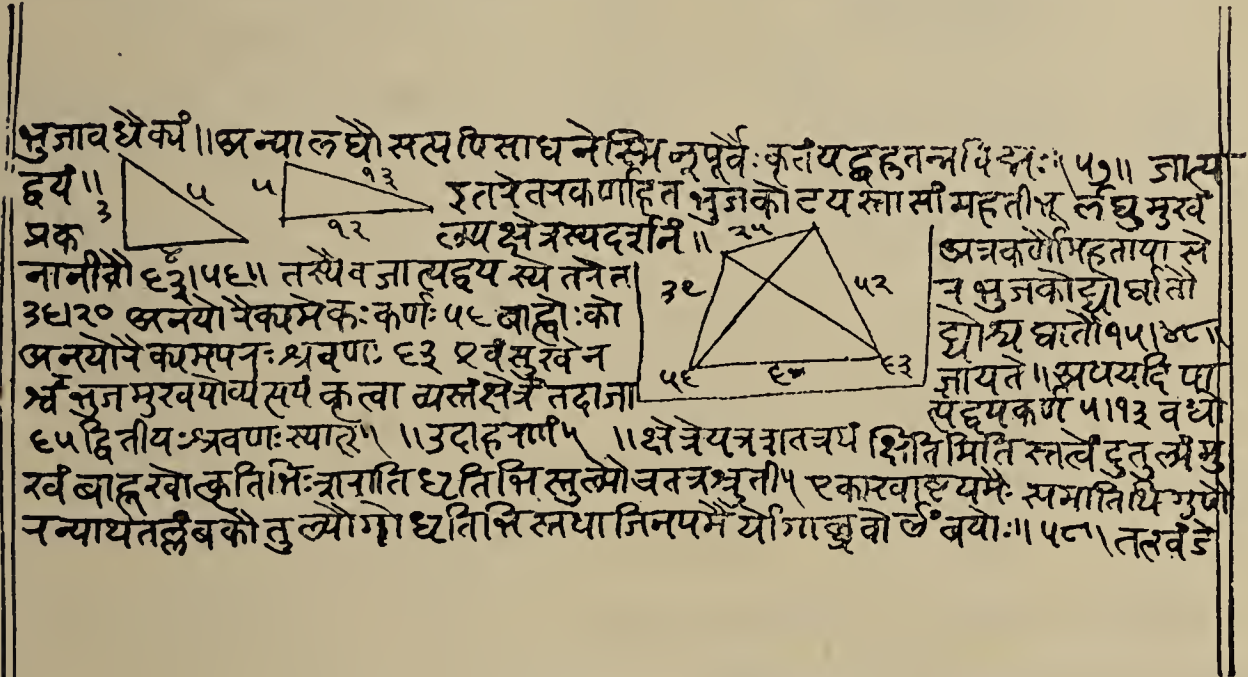 भुजावधैक्यं॥ अन्या लघौ सत्यपि साधनेस्मिन् पूर्वैः कृतं यद्बहु तन्न विद्मः॥५७॥ जात्य
द्वयं॥ ३ ५ ४ ५ १३ १२ इतरेतरकर्णाहत भुजकोटय स्तासां महती भू र्लघु मुखं
प्रक ल्प्य क्षेत्रस्य दर्शनं॥ २५ ३९ ५२ ६० अत्र कर्णौ महताया से
नानीतौ ६३।५६॥ तस्यैव जात्यद्वय स्ये तरेत र भुजकोट्यो र्घातौ
३६।२० अनयो रैक्यमेकः कर्णः ५६ बाह्वोः को ट्योश्च घातौ १५।४८॥
अनयोरैक्यमपरः श्रवणः ६३ एवं सुखेन ५६ ६३ जायते॥ अथ यदि पा
र्श्व भुज मुखयोर्व्यत्ययं कृत्वा न्यस्तं क्षेत्रं तदा जा त्यद्वय कर्ण ५।१३ वधो
६५ द्वितीयः श्रवणः स्यात्॥ ॥उदाहरणं ॥क्षेत्रे यत्र शतत्रयं क्षितिमिति स्तत्त्वेंदु तुल्यं मु
खं बाहू खोत्कृतिभिः शरातिधृतिभि स्तुल्यौ च तत्र श्रुती एका खाष्टयमैः समा तिथिगुणै
रन्याथ तल्लंबकौ तुल्यौ गोधृतिभि स्तथा जिनयमै र्योगाच्छ्रवो र्लंबयोः॥५८॥ तत्खंडे